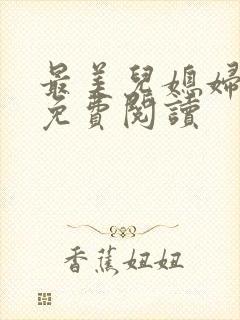 最美兒媳婦
免費閱讀
香蕉妞妞